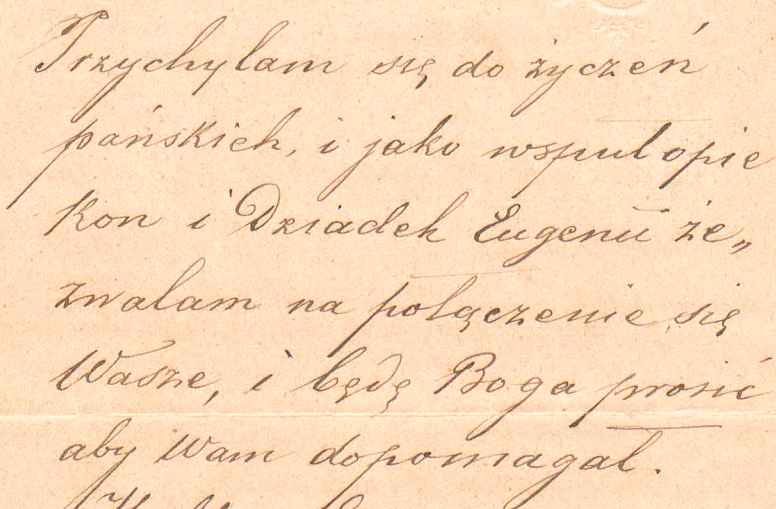 Przychylam się do życzeń
pańskich, i jako wspul opie
kon i Dziadek Eugenii ze„
zwalam na połączenie się
Wasze, i będę Boga prosić
aby Wam dopomagał.